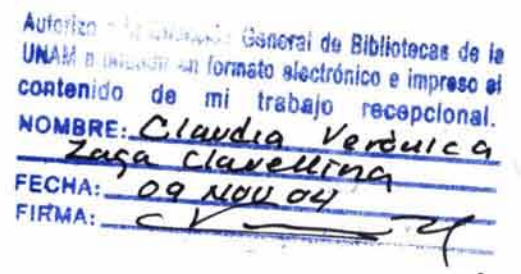 Autorizo a la General de Bibliotecas de la
UNAM a en formato electrónico e impreso el
contenido de mi trabajo recepcional.
NOMBRE: Claudia Verónica
Zaga Clavellina
FECHA: 09 NOV 04
FIRMA: